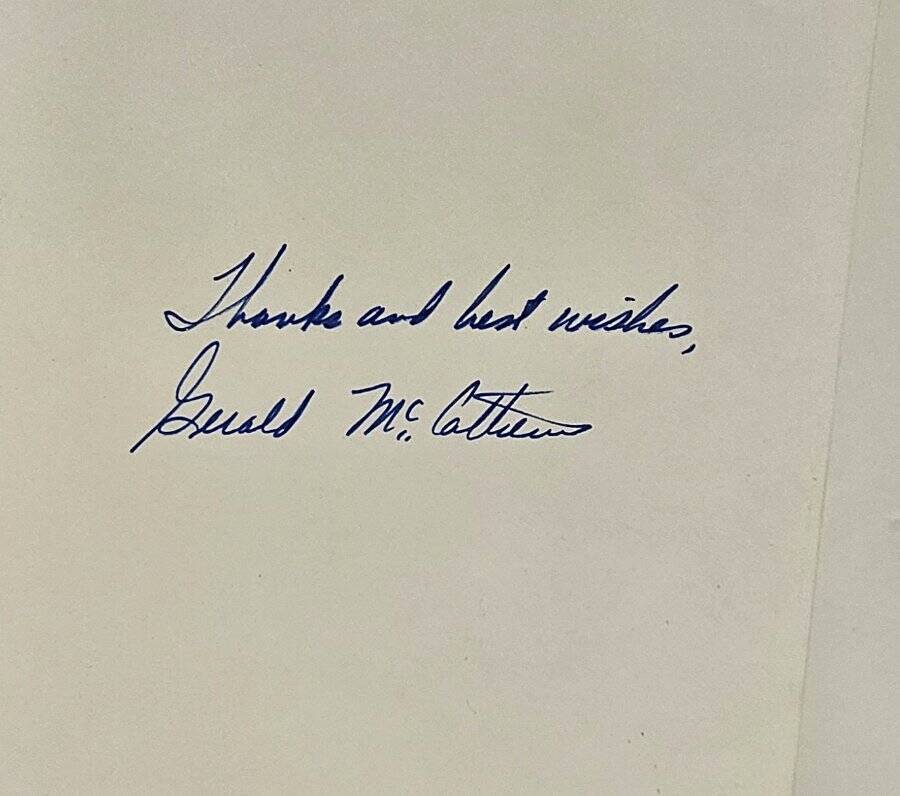 Thanks and best wishes,
Gerald McCathern